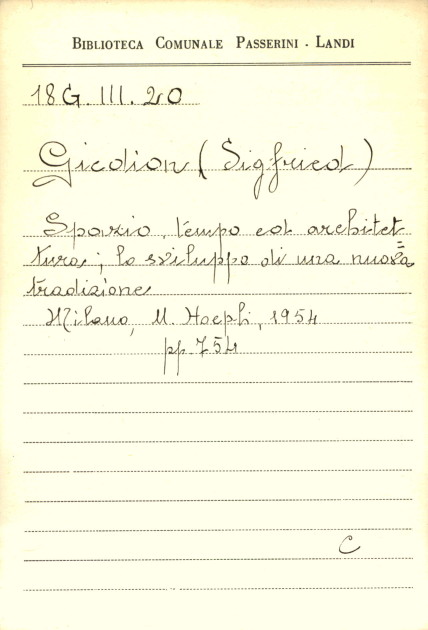 BIBLIOTECA COMUNALE PASSERINI - LANDI
18G. III. 20
Giedion (Sigfried)
Spazio, tempo ed architet=
tura; lo sviluppo di una nuova
tradizione
Milano, U. Hoepli, 1954
pp. 754
C